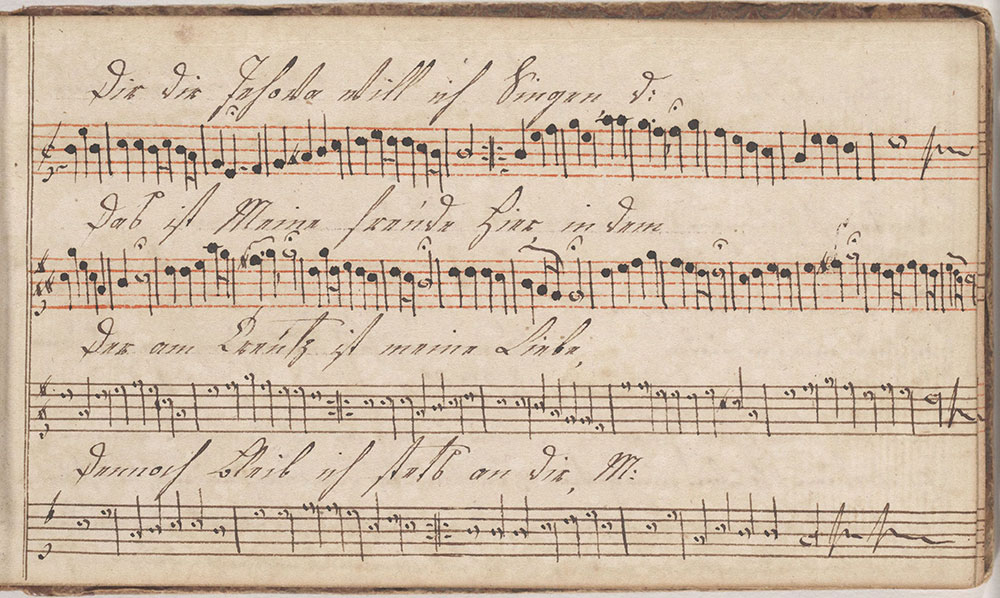 Dir dir Jehova will ich Singen d:
Das ist Meine freude Hier, in dem
Der am Creutz ist meine Liebe,
Dennoch Bleib ich stets an dir, M: